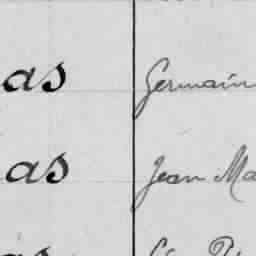 as Germain
as Jean Ma
as